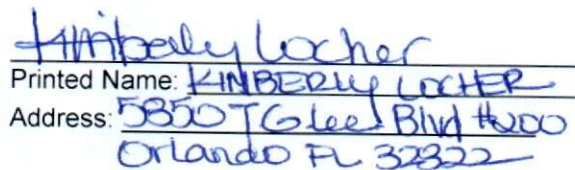 Kimberly Locher
Printed Name: KIMBERLY LOCHER
Address: 5850 TG Lee Blvd #200
Orlando FL 32822